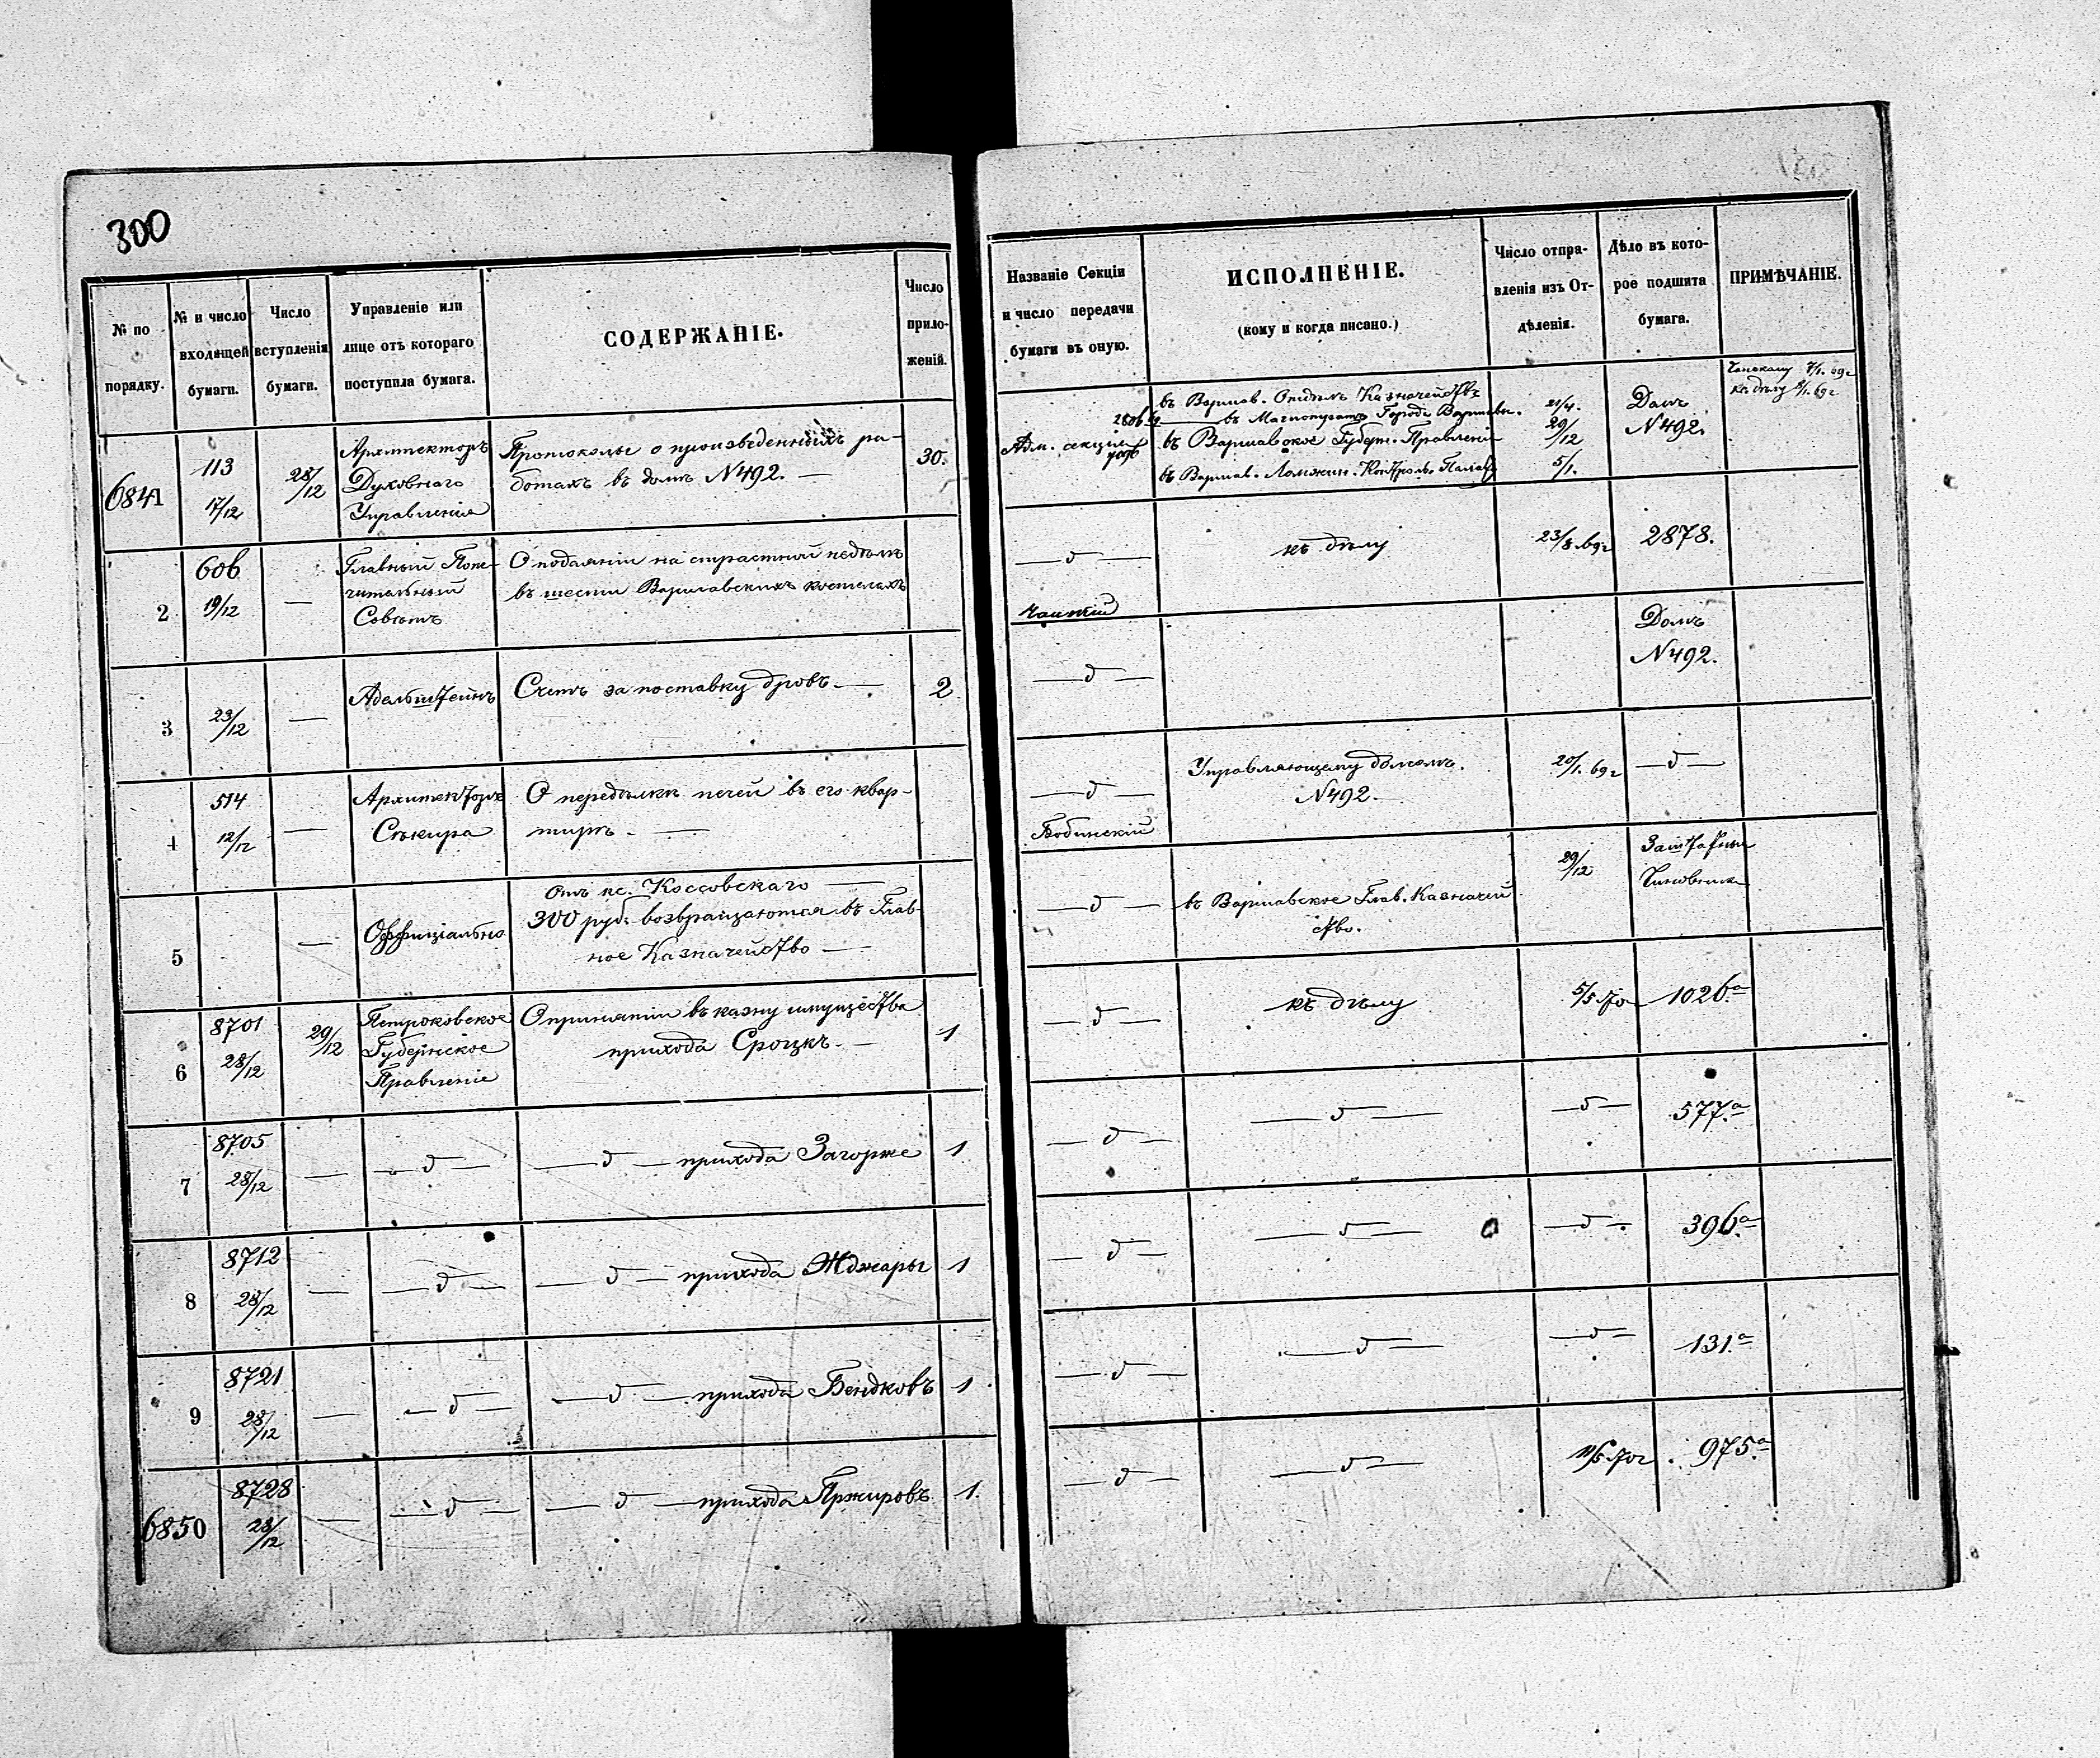 300
№ по
порядку.
№ и число
входящей
бумаги.
Число
вступленія
бумаги.
Управленіе или
лице отъ котораго
поступила бумага.
СОДЕРЖАНІЕ.
Число
прило-
женій.
6841
113
17/12
28/12
Архитекторъ
Духовнаго
Управленія
Протоколы о произведенныхъ ра-
ботахъ въ домѣ N 492. —
30.
2
606
19/12
—
Главный Попе-
чительный
Совѣтъ
О подаяніи на страстной недѣлѣ
въ шести Варшавскихъ костелахъ
3
23/12
—
Адельштейнъ
Счетъ за поставку дровъ. —
2
4
514
12/12
—
Архитекторъ
Сѣкира
О передѣлкѣ печей въ его квар-
тирѣ. —
5
—
Оффиціально
Отъ кс. Коссовскаго —
300 руб. возвращаются въ Глав-
ное Казначейство —
6
8701
28/12
29/12
Петроковское
Губернское
Правленіе
О принятіи въ казну имущества
прихода Сроцкъ. —
1
7
8705
28/12
—
— д —
— д — прихода Загорже
1
8
8712
28/12
—
— д —
— д — прихода Жджары
1
9
8721
28/12
—
— д —
— д — прихода Бендковъ
1
6850
8728
28/12
—
— д —
— д — прихода Пржировъ
1.
Названіе Секціи
и число передачи
бумаги въ оную.
ИСПОЛНЕНІЕ.
(кому и когда писано.)
Число отпра-
вленія изъ От-
дѣленія.
Дѣло въ кото-
рое подшита
бумага.
ПРИМѢЧАНІЕ.
Адм. секція
въ Варшав. Казначейство
въ Магистратъ Города Варшавы.
въ Варшавское Губерн. Правленіе
въ Варшав. Ломжин. Контроль. Палату
21/4.
29/12
5/1.
Домъ
N 492.
7/1. 69 г
къ дѣлу 8/1. 69 г
— д —
къ дѣлу
23/8 69 г
2878.
— д —
Домъ
N 492.
— д —
Управляющему домомъ.
N 492. —
20/1. 69 г
— д —
Бобинскій
— д —
въ Варшавское Глав. Казначей
ство.
29/12
Заштатные
Чиновники
— д —
къ дѣлу
5/5 70
1026.а
— д —
— д —
— д —
577.а
— д —
— д —
— д —
396.а
— д —
— д —
— д —
131.а
— д —
— д —
11/5 70 г
975.а